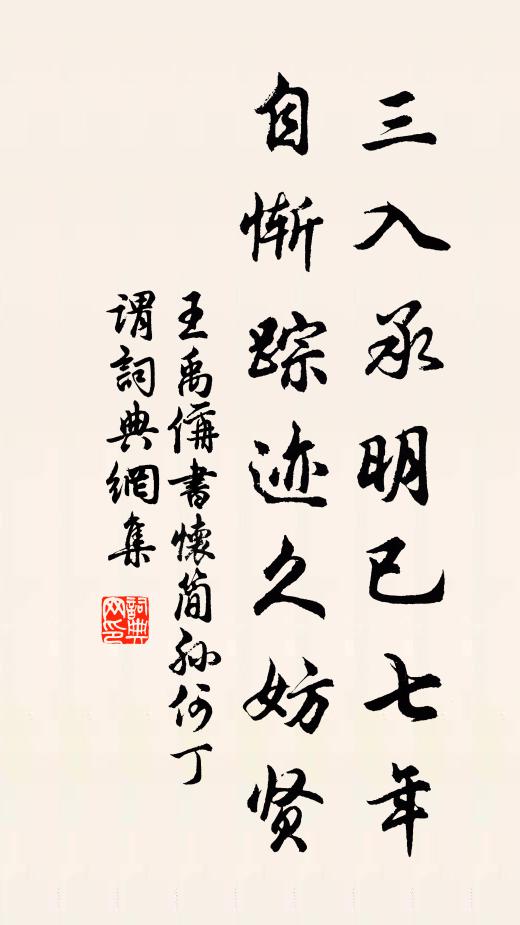 三入承明已七年
自惭踪迹久妨贤
王禹偁書懷简孙何丁
謂詞典網集
詞典
网印